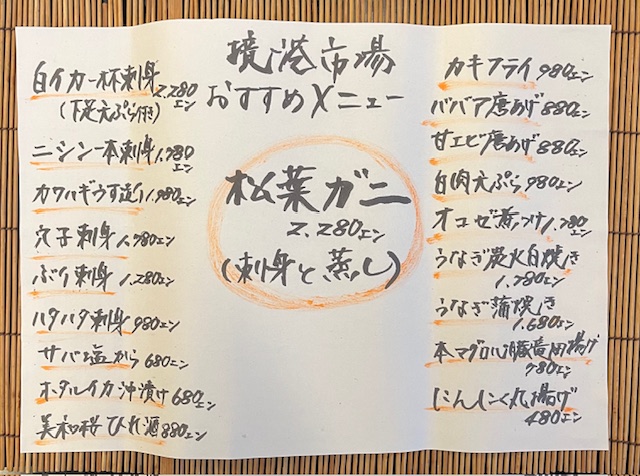 境港市場
おすすめメニュー
松葉ガニ
2.280エン
(刺身と蒸し)
白イカ一杯刺身 2,280エン
(下足天ぷら付き)
ニシン一本刺身 1,780エン
カワハギうす造り 1,980エン
穴子刺身 1,780エン
ぶり刺身 1,280エン
ハタハタ刺身 980エン
サバ塩から 680エン
ホタルイカ沖漬け 680エン
美和桜ひれ酒 880エン
カキフライ 980エン
ババア唐あげ 880エン
甘エビ唐あげ 880エン
白肉天ぷら 980エン
オコゼ煮つけ 1,780エン
うなぎ炭火白焼き
1.780エン
うなぎ蒲焼き
1.680エン
本マグロ心臓竜田揚げ
780エン
にんにく丸揚げ
480エン